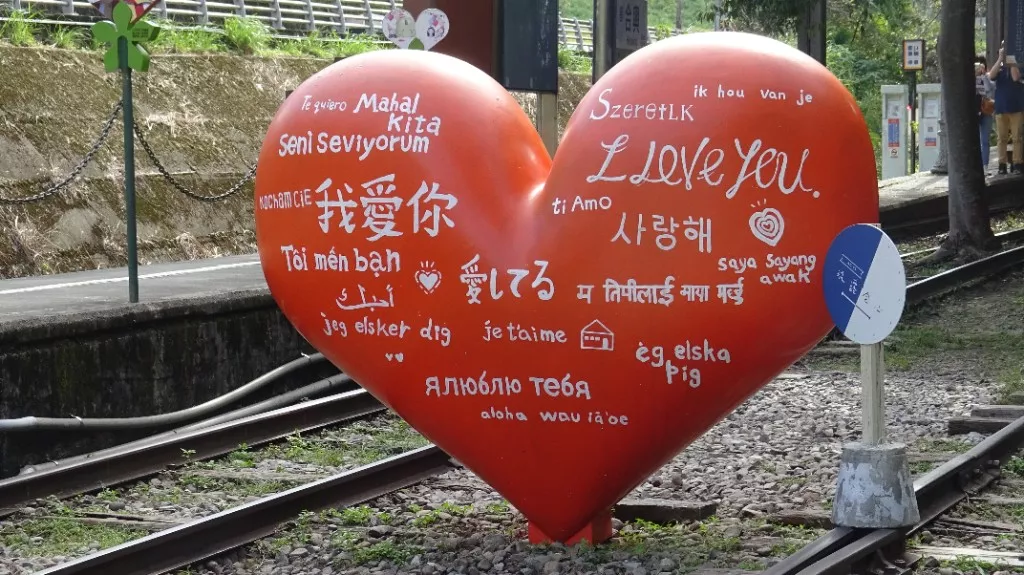 Te quiero
Mahal
kita
Seni Seviyorum
KOCHAM CiE
我愛你
Tôi mén bạn
أحبك
jeg elsker dig
愛してる
je t'aime
Szeretlk
ik hou van je
I Love You.
ti Amo
사랑해
saya Sayang
awak
म तिमीलाई माया गर्छु
ėg elska
þig
Я люблю тебя
aloha wau iā'oe